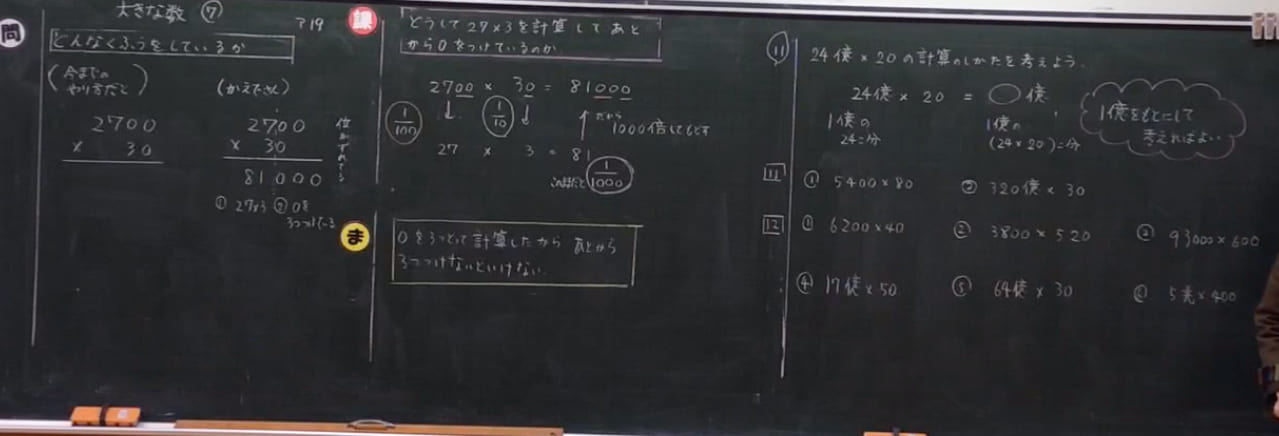 大きな数 ⑦
P19
問
どんなくふうをしているか
(今までの
やり方だと)
2700
× 30
(かえでさん)
2700
× 30
81000
① 27×3 ② 0を
3つつけている
位がずれてる
課
どうして27×3を計算して あと
から0をつけているのか
2700 × 30 = 81000
1/100
1/10
だから
1000倍してもどす
27 × 3 = 81
1/1000
ま
0を3つとって計算したから あとから
3つつけないといけない
⑪ 24億×20の計算のしかたを考えよう。
24億 × 20 = ○ 億
1億の
24こ分
1億の
(24×20)こ分
1億をもとにして
考えればよい
11 ① 5400×80 ② 320億×30
12 ① 6200×40 ② 3800×520 ③ 93000×600
④ 17億×50 ⑤ 64億×30 ⑥ 5兆×400